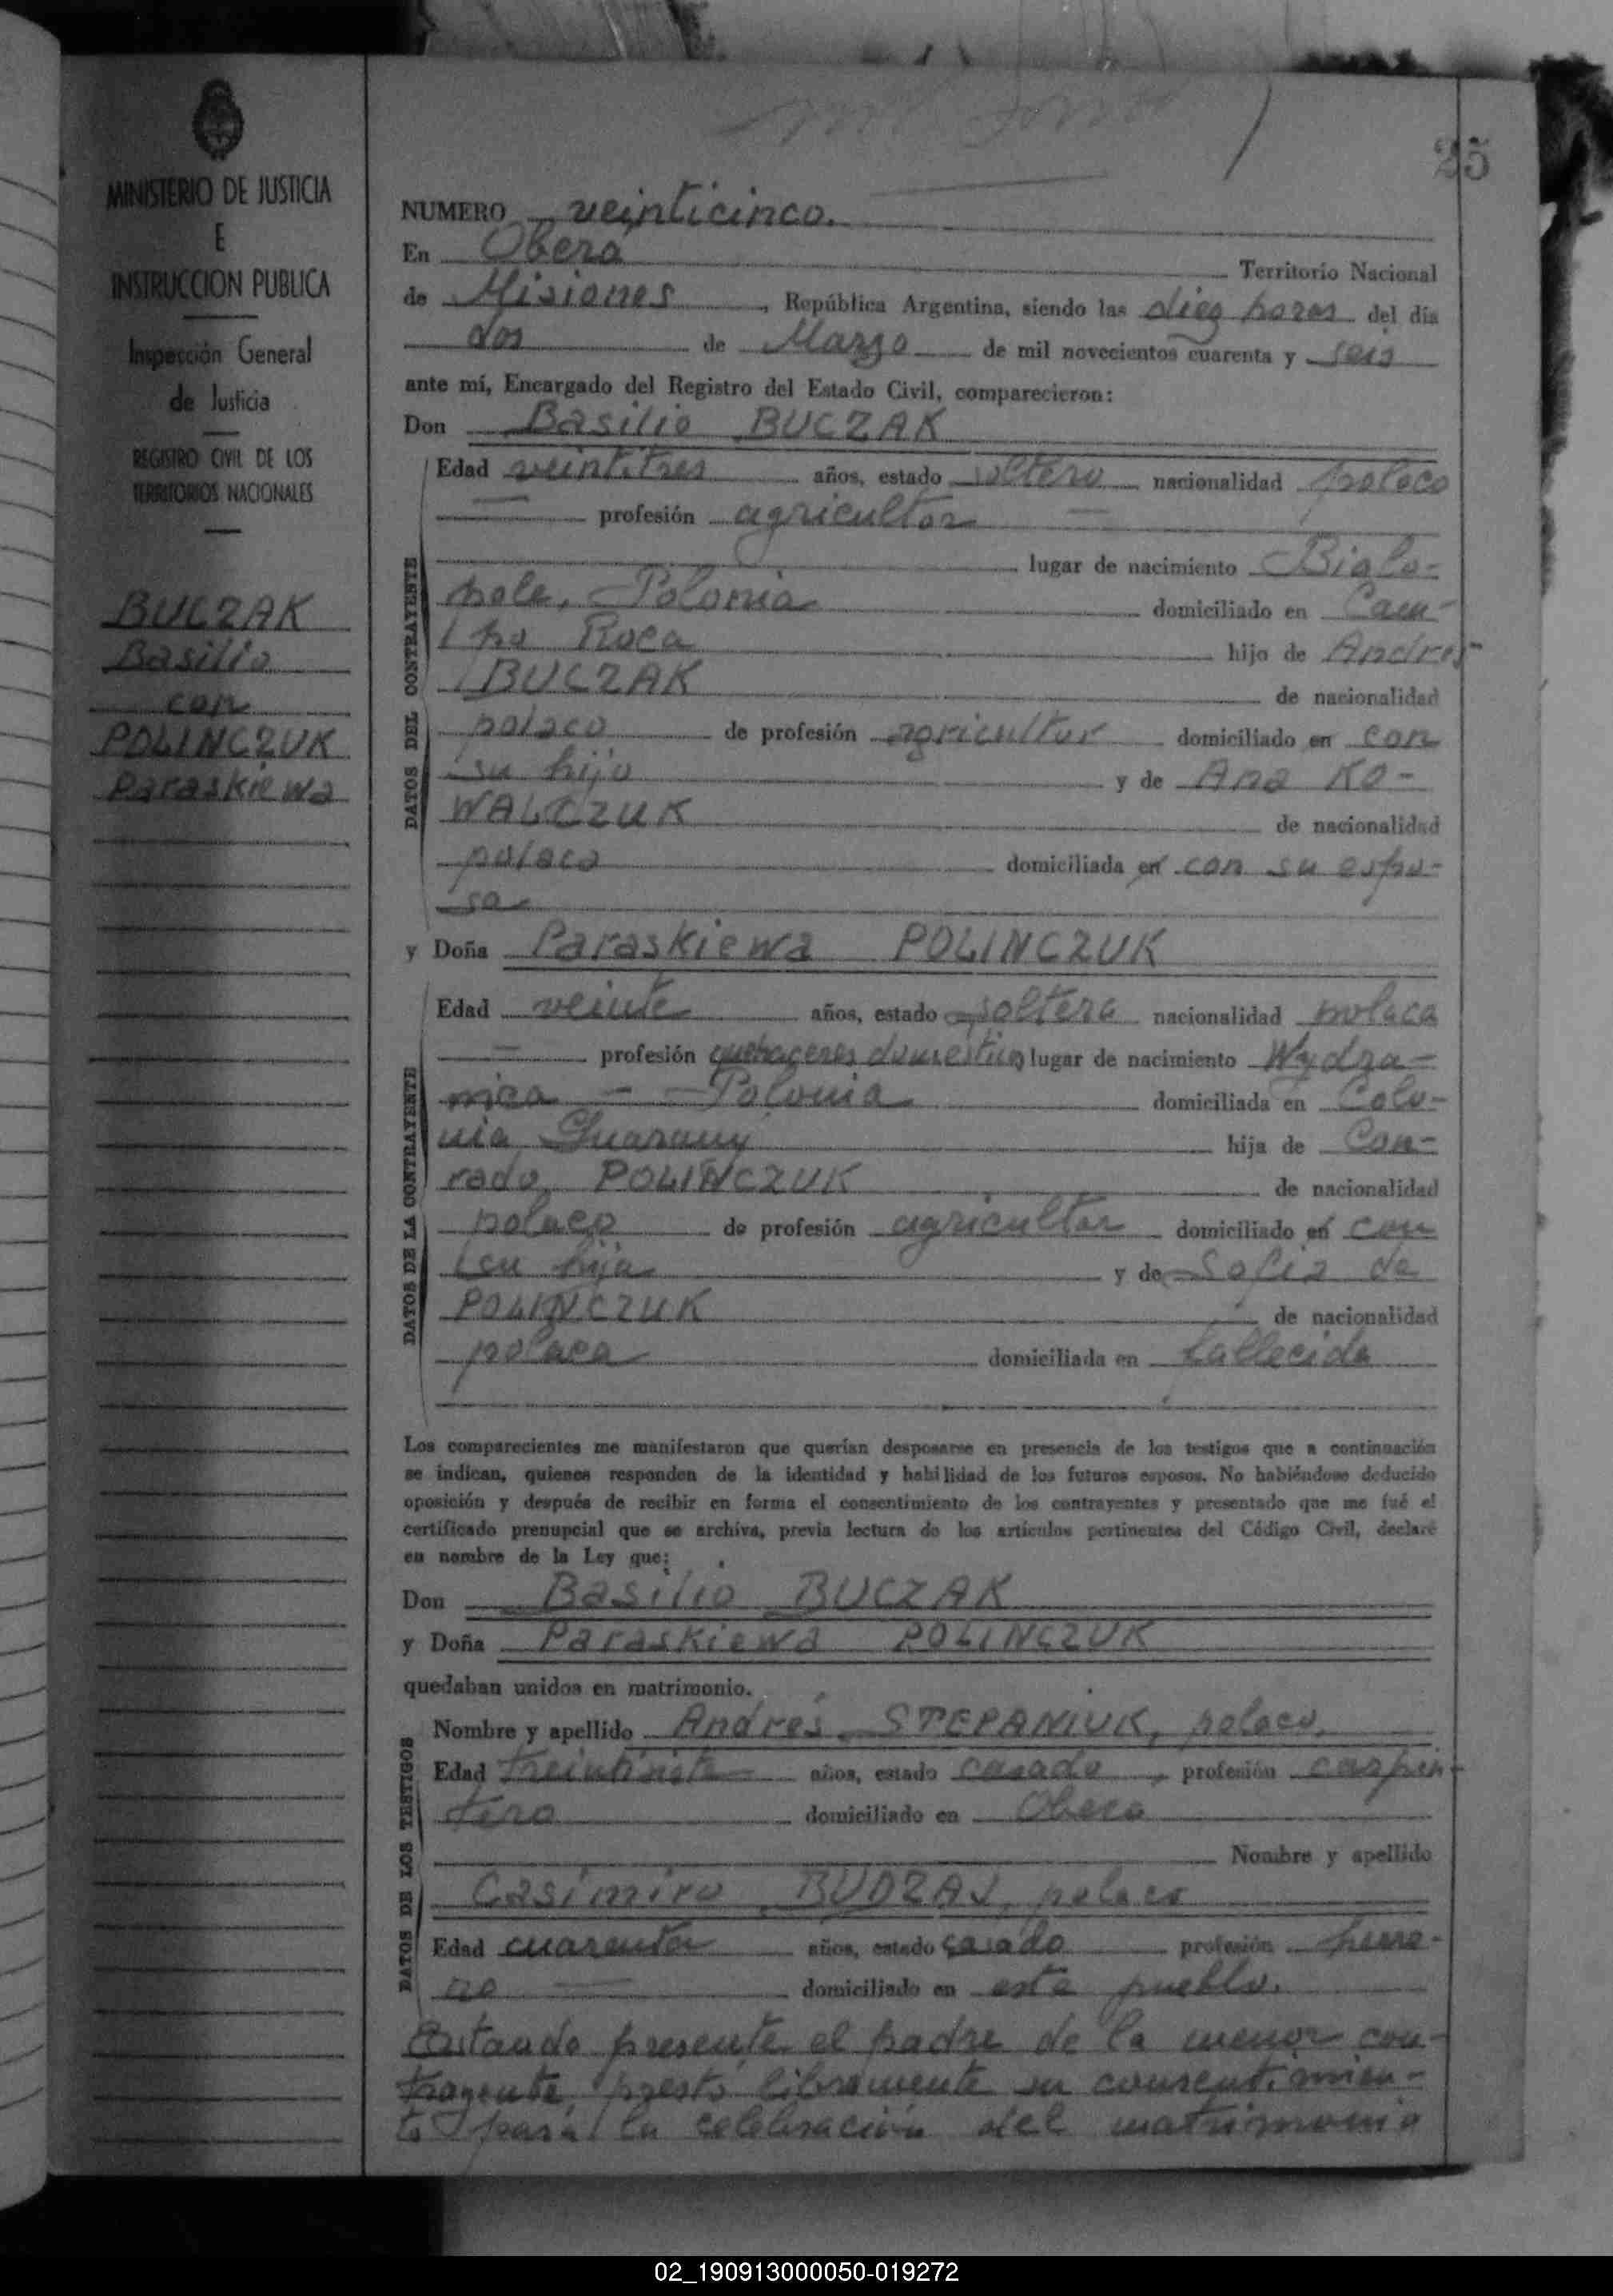 25
MINISTERIO DE JUSTICIA
E
INSTRUCCION PUBLICA
Inspección General
de Justicia
REGISTRO CIVIL DE LOS
TERRITORIOS NACIONALES
BUCZAK
Basilio
con
POLINCZUK
Paraskiewa
NUMERO veinticinco.
En Oberá Territorio Nacional
de Misiones, República Argentina, siendo las diez horas del día
dos de Marzo de mil novecientos cuarenta y seis
ante mí, Encargado del Registro del Estado Civil, comparecieron:
Don Basilio BUCZAK
DATOS DEL CONTRAYENTE
Edad veintitres años, estado soltero nacionalidad polaco
— profesión agricultor —
lugar de nacimiento Bialo-
pole, Polonia domiciliado en Cam-
po Roca hijo de Andres
BUCZAK de nacionalidad
polaco de profesión agricultor domiciliado en con
su hijo y de Ana KO-
WALCZUK de nacionalidad
polaca domiciliada en con su espo-
so
y Doña Paraskiewa POLINCZUK
DATOS DE LA CONTRAYENTE
Edad veinte años, estado soltera nacionalidad polaca
— profesión quehaceres domesticos lugar de nacimiento Wydra-
nica - - Polonia domiciliada en Colo-
nia Guarany hija de Con-
rado POLINCZUK de nacionalidad
polaco de profesión agricultor domiciliado en con
su hija y de Sofia de
POLINCZUK de nacionalidad
polaca domiciliada en fallecida
Los comparecientes me manifestaron que querían desposarse en presencia de los testigos que a continuación
se indican, quienes responden de la identidad y habilidad de los futuros esposos. No habiéndose deducido
oposición y después de recibir en forma el consentimiento de los contrayentes y presentado que me fué el
certificado prenupcial que se archiva, previa lectura de los artículos pertinentes del Código Civil, declaré
en nombre de la Ley que:
Don Basilio BUCZAK
y Doña Paraskiewa POLINCZUK
quedaban unidos en matrimonio.
DATOS DE LOS TESTIGOS
Nombre y apellido Andrés STEPANIUK, polaco,
Edad años, estado casado, profesión carpin-
tero domiciliado en Obera
Nombre y apellido
Casimiro BUDZAJ, polaco
Edad cuarenta años, estado casado profesión herre-
ro — domiciliado en este pueblo.
Estando presente el padre de la menor con-
trayente, prestó libremente su consentimien-
to para la celebración del matrimonio
02_190913000050-019272